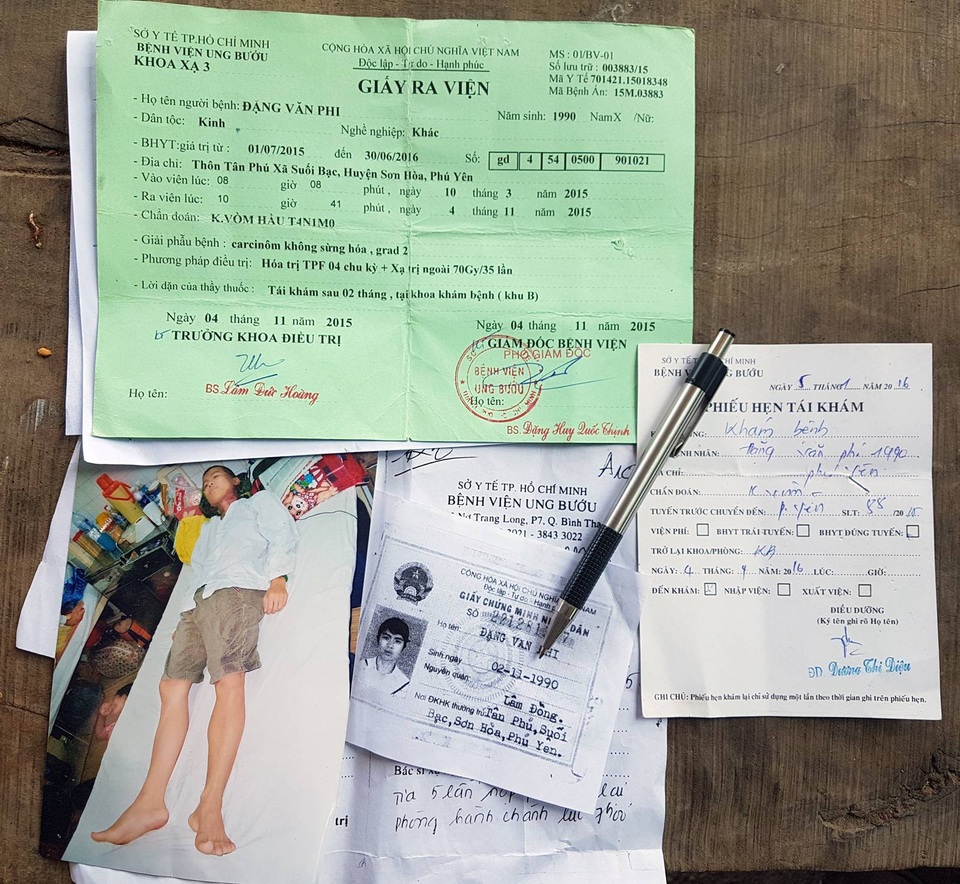 SỞ Y TẾ TP.HỒ CHÍ MINH
BỆNH VIỆN UNG BƯỚU
KHOA XẠ 3
CỘNG HÒA XÃ HỘI CHỦ NGHĨA VIỆT NAM
Độc lập - Tự do - Hạnh phúc
GIẤY RA VIỆN
MS : 01/BV-01
Số lưu trữ : 003883/15
Mã Y Tế 701421.15018348
Mã Bệnh Án: 15M.03883
- Họ tên người bệnh: ĐẶNG VĂN PHI Năm sinh: 1990 Nam X /Nữ:
- Dân tộc: Kinh Nghề nghiệp: Khác
- BHYT:giá trị từ : 01/07/2015 đến 30/06/2016 Số: gd 4 54 0500 901021
- Địa chỉ: Thôn Tân Phú Xã Suối Bạc, Huyện Sơn Hòa, Phú Yên
- Vào viên lúc: 08 giờ 08 phút , ngày 10 tháng 3 năm 2015
- Ra viên lúc: 10 giờ 41 phút , ngày 4 tháng 11 năm 2015
- Chẩn đoán: K.VÒM HẦU T4N1M0
- Giải phẫu bệnh : carcinôm không sừng hóa , grad 2
- Phương pháp điều trị: Hóa trị TPF 04 chu kỳ + Xạ trị ngoài 70Gy/35 lần
- Lời dặn của thầy thuốc : Tái khám sau 02 tháng , tại khoa khám bệnh ( khu B)
Ngày 04 tháng 11 năm 2015
TRƯỞNG KHOA ĐIỀU TRỊ
Họ tên: BS. Lâm Đức Hoàng
Ngày 04 tháng 11 năm 2015
GIÁM ĐỐC BỆNH VIỆN
PHÓ GIÁM ĐỐC
BỆNH VIỆN
UNG BƯỚU
Họ tên:
BS. Đặng Huy Quốc Thịnh
SỞ Y TẾ CHÍ MINH
BỆNH G BƯỚU
NGÀY 5 THÁNG 1 NĂM 2016
PHIẾU HẸN TÁI KHÁM
NG: Khám bệnh
ỆNH NHÂN: Đặng văn phi 1990
A CHỈ: phú yên
CHẨN ĐOÁN: K vòm
TUYẾN TRƯỚC CHUYỂN ĐẾN: P.yên SLT: 88 /20
VIỆN PHÍ: BHYT TRÁI TUYẾN: BHYT ĐÚNG TUYẾN:
TRỞ LẠI KHOA/PHÒNG: KB
NGÀY: 4 THÁNG: 4 NĂM: 2016 LÚC: GIỜ:
ĐẾN KHÁM: NHẬP VIỆN: XUẤT VIỆN:
ĐIỀU DƯỠNG
(Ký tên ghi rõ Họ tên)
ĐD Dương Thị Diệu
GHI CHÚ: Phiếu hẹn khám lại chỉ sử dụng một lần theo thời gian ghi trên phiếu hẹn.
SỞ Y TẾ TP. HỒ CHÍ MINH
BỆNH VIỆN UNG BƯỚU
Nơ Trang Long, P7, Q. Bình Tha
- 3843 3022
CỘNG HÒA XÃ HỘI CHỦ NGHĨA VIỆT NAM
Độc lập - Tự do - Hạnh p
GIẤY CHỨNG MINH N DÂN
SỐ
Họ tên: ĐẶNG VĂN PHI
Sinh ngày 02-11-1990
Nguyên quán Lâm Đồng.
Nơi ĐKHK thường trú Tân Phú, Suối
Bạc, Sơn Hòa, Phú Yên.
Bác sĩ
5 lần lại
phòng hành chánh lúc
trị